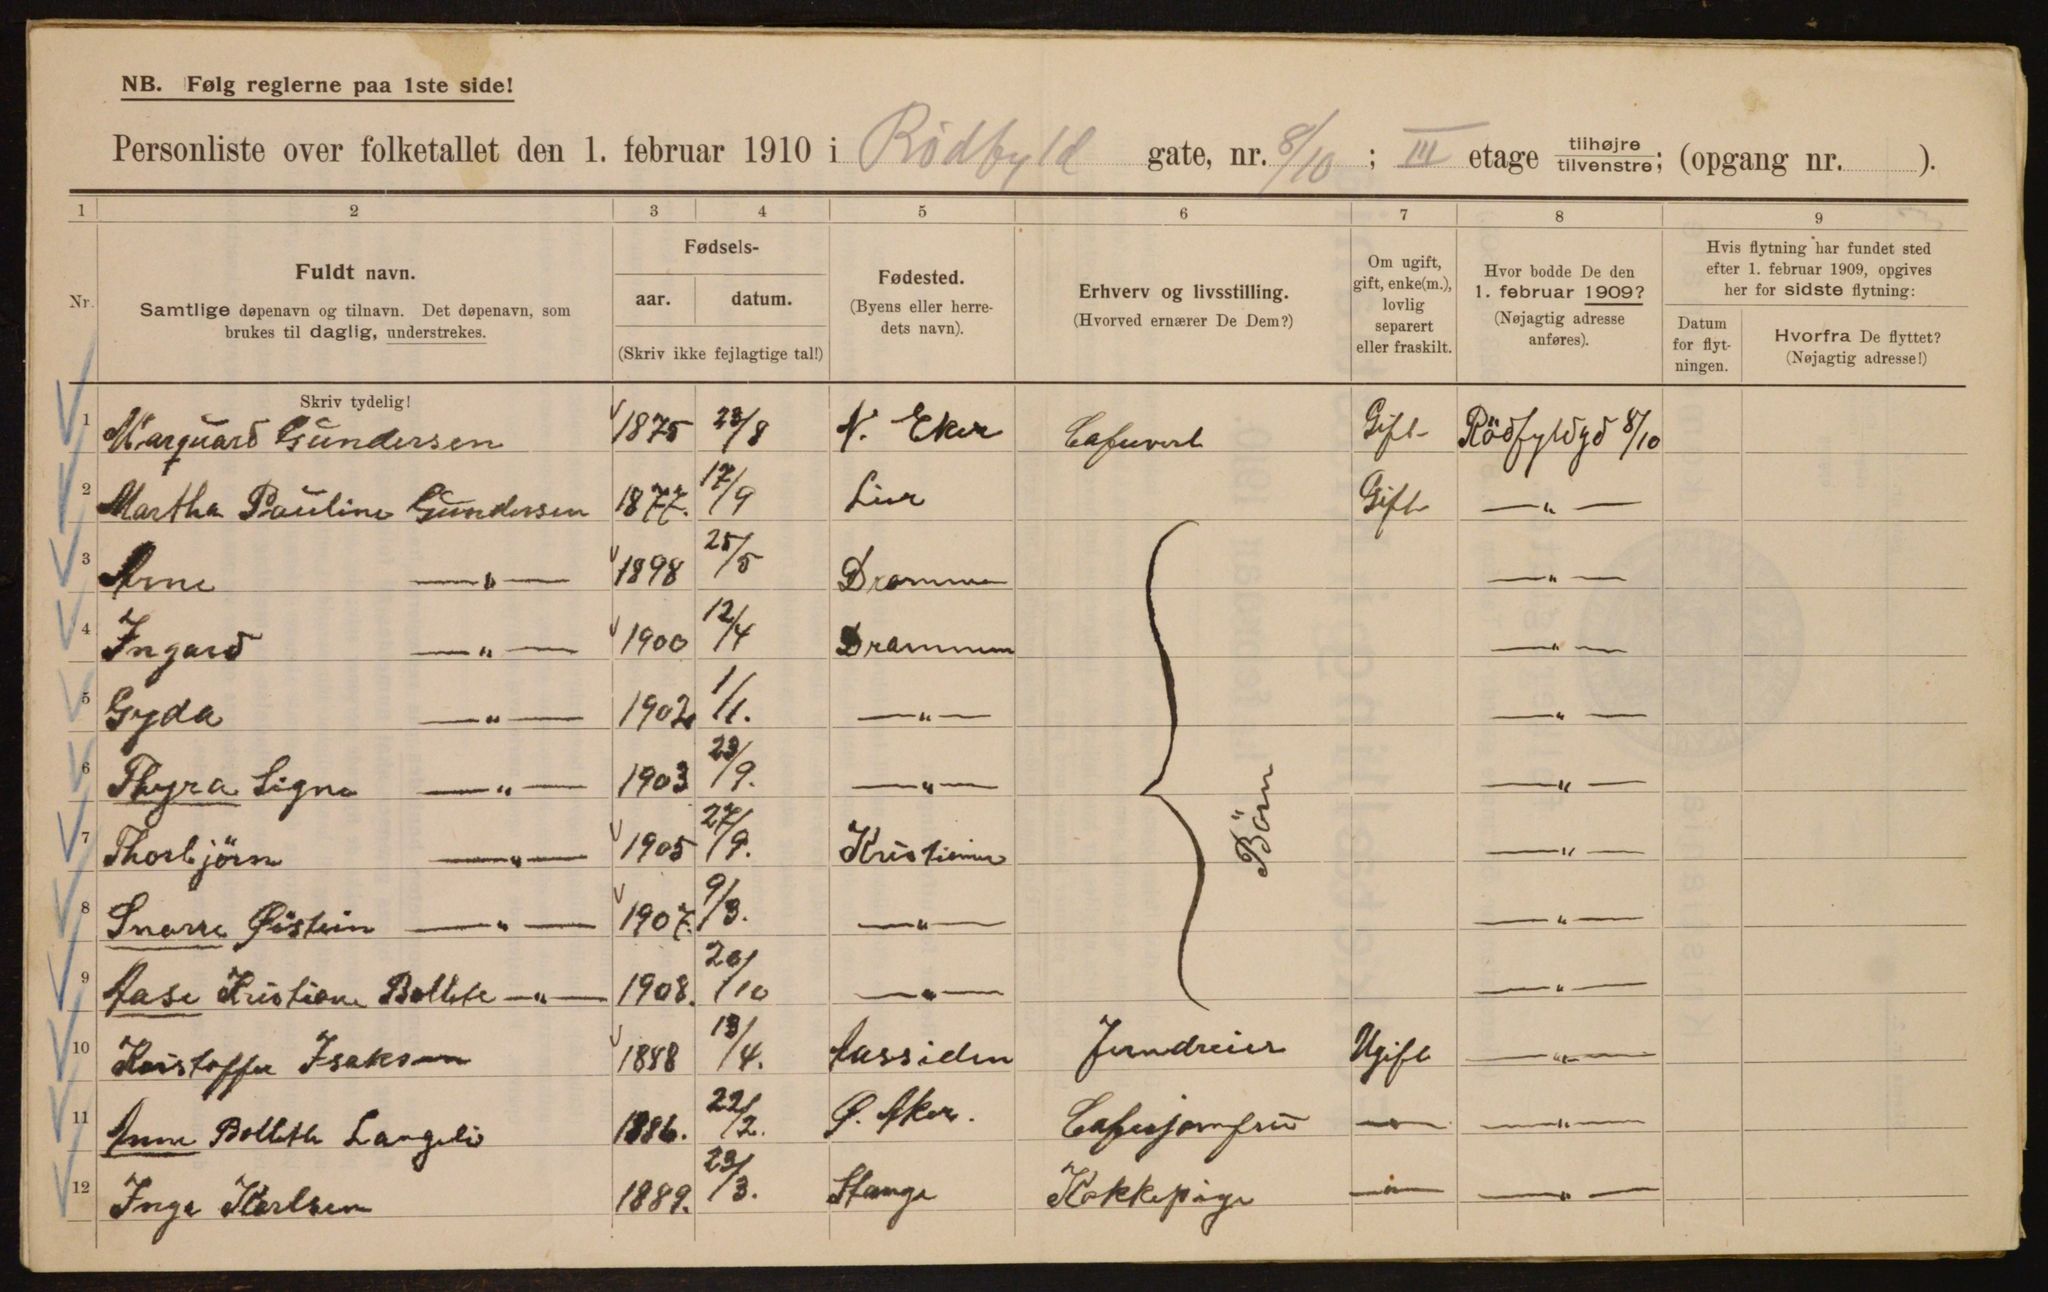 NB. Følg reglerne paa 1ste side!
Personliste over folketallet den 1. februar 1910 i Rödfyld gate, nr. 8/10; III etage tilhøjre/tilvenstre; (opgang nr. ).
1 2 3 4 5 6 7 8 9
Nr. Fuldt navn. Samtlige døpenavn og tilnavn. Det døpenavn, som brukes til daglig, understrekes.
Fødsels- aar. datum. (Skriv ikke fejlagtige tal!)
Fødested. (Byens eller herredets navn).
Erhverv og livsstilling. (Hvorved ernærer De Dem?)
Om ugift, gift, enke(m.), lovlig separert eller fraskilt.
Hvor bodde De den 1. februar 1909? (Nøjagtig adresse anføres).
Hvis flytning har fundet sted efter 1. februar 1909, opgives her for sidste flytning:
Datum for flytningen. Hvorfra De flyttet? (Nøjagtig adresse!)
Skriv tydelig!
1 Marquard Gundersen 1875 23/8 N. Eker Cafeuvert Gift Rödfyldgd 8/10
2 Martha Pauline Gundersen 1877. 17/9 Lier Gift —„—
3 Arne —„— 1898 25/5 Drammen —„—
4 Ingard —„— 1900 12/4 Drammen —„—
5 Gyda —„— 1902 1/1. —„— —„—
6 Thyra Signe —„— 1903 23/9. —„— —„—
Börn
7 Thorbjörn —„— 1905 27/9. Kristiania —„—
8 Snorre Øistein —„— 1907. 9/3. —„— —„—
9 Aase Kristiane Bollete —„— 1908. 20/10 —„— —„—
10 Kristoffer Isaksen 1888 13/4. Aassiden Jerndreier Ugift —„—
11 Anne Bollette Langeli 1886. 22/2. Ø. Aker. Cafejomfru —„— —„—
12 Inga Karlsen 1889. 23/3. Stange Kokkepige —„— —„—